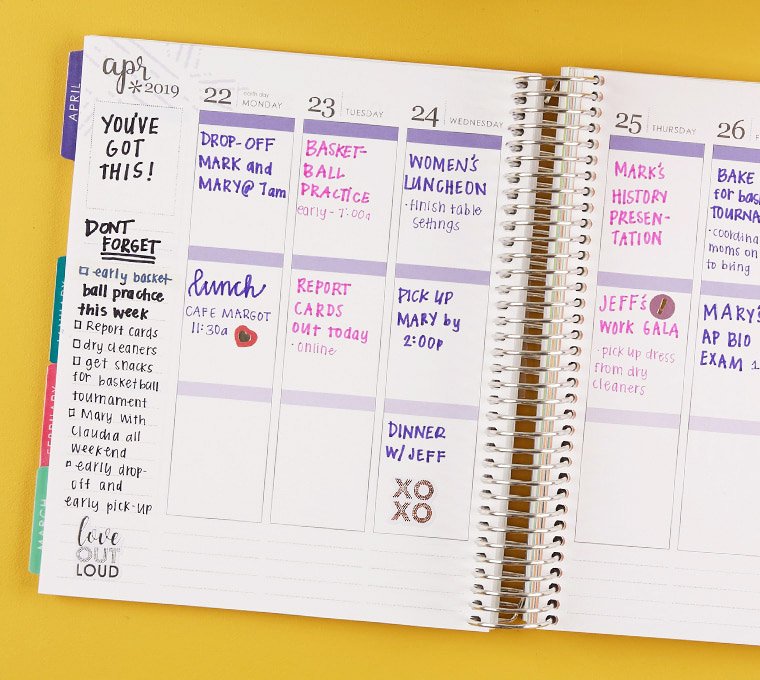 APRIL
JANUARY
FEBRUARY
MARCH
apr
*2019
YOU'VE
GOT
THIS!
DONT
FORGET
early basket-
ball practice
this week
Report cards
dry cleaners
get snacks
for basketball
tournament
Mary with
Claudia all
weekend
early drop-
off and
early pick-up
love
OUT
LOUD
22
earth day
MONDAY
DROP-OFF
MARK and
MARY@ 7am
lunch
CAFE MARGOT
11:30a
23
TUESDAY
BASKET-
BALL
PRACTICE
early - 7:00a
REPORT
CARDS
out today
· online
24
WEDNESDAY
WOMEN'S
LUNCHEON
· finish table
settings
PICK UP
MARY by
2:00p
DINNER
W/ JEFF
XO
XO
25
THURSDAY
MARK'S
HISTORY
PRESEN-
TATION
JEFF'S
WORK GALA
· pick up dress
from dry
cleaners
26
BAKE
for bas
TOURNA
· coordina
moms on
to bring
MARY'S
AP BIO
EXAM 1